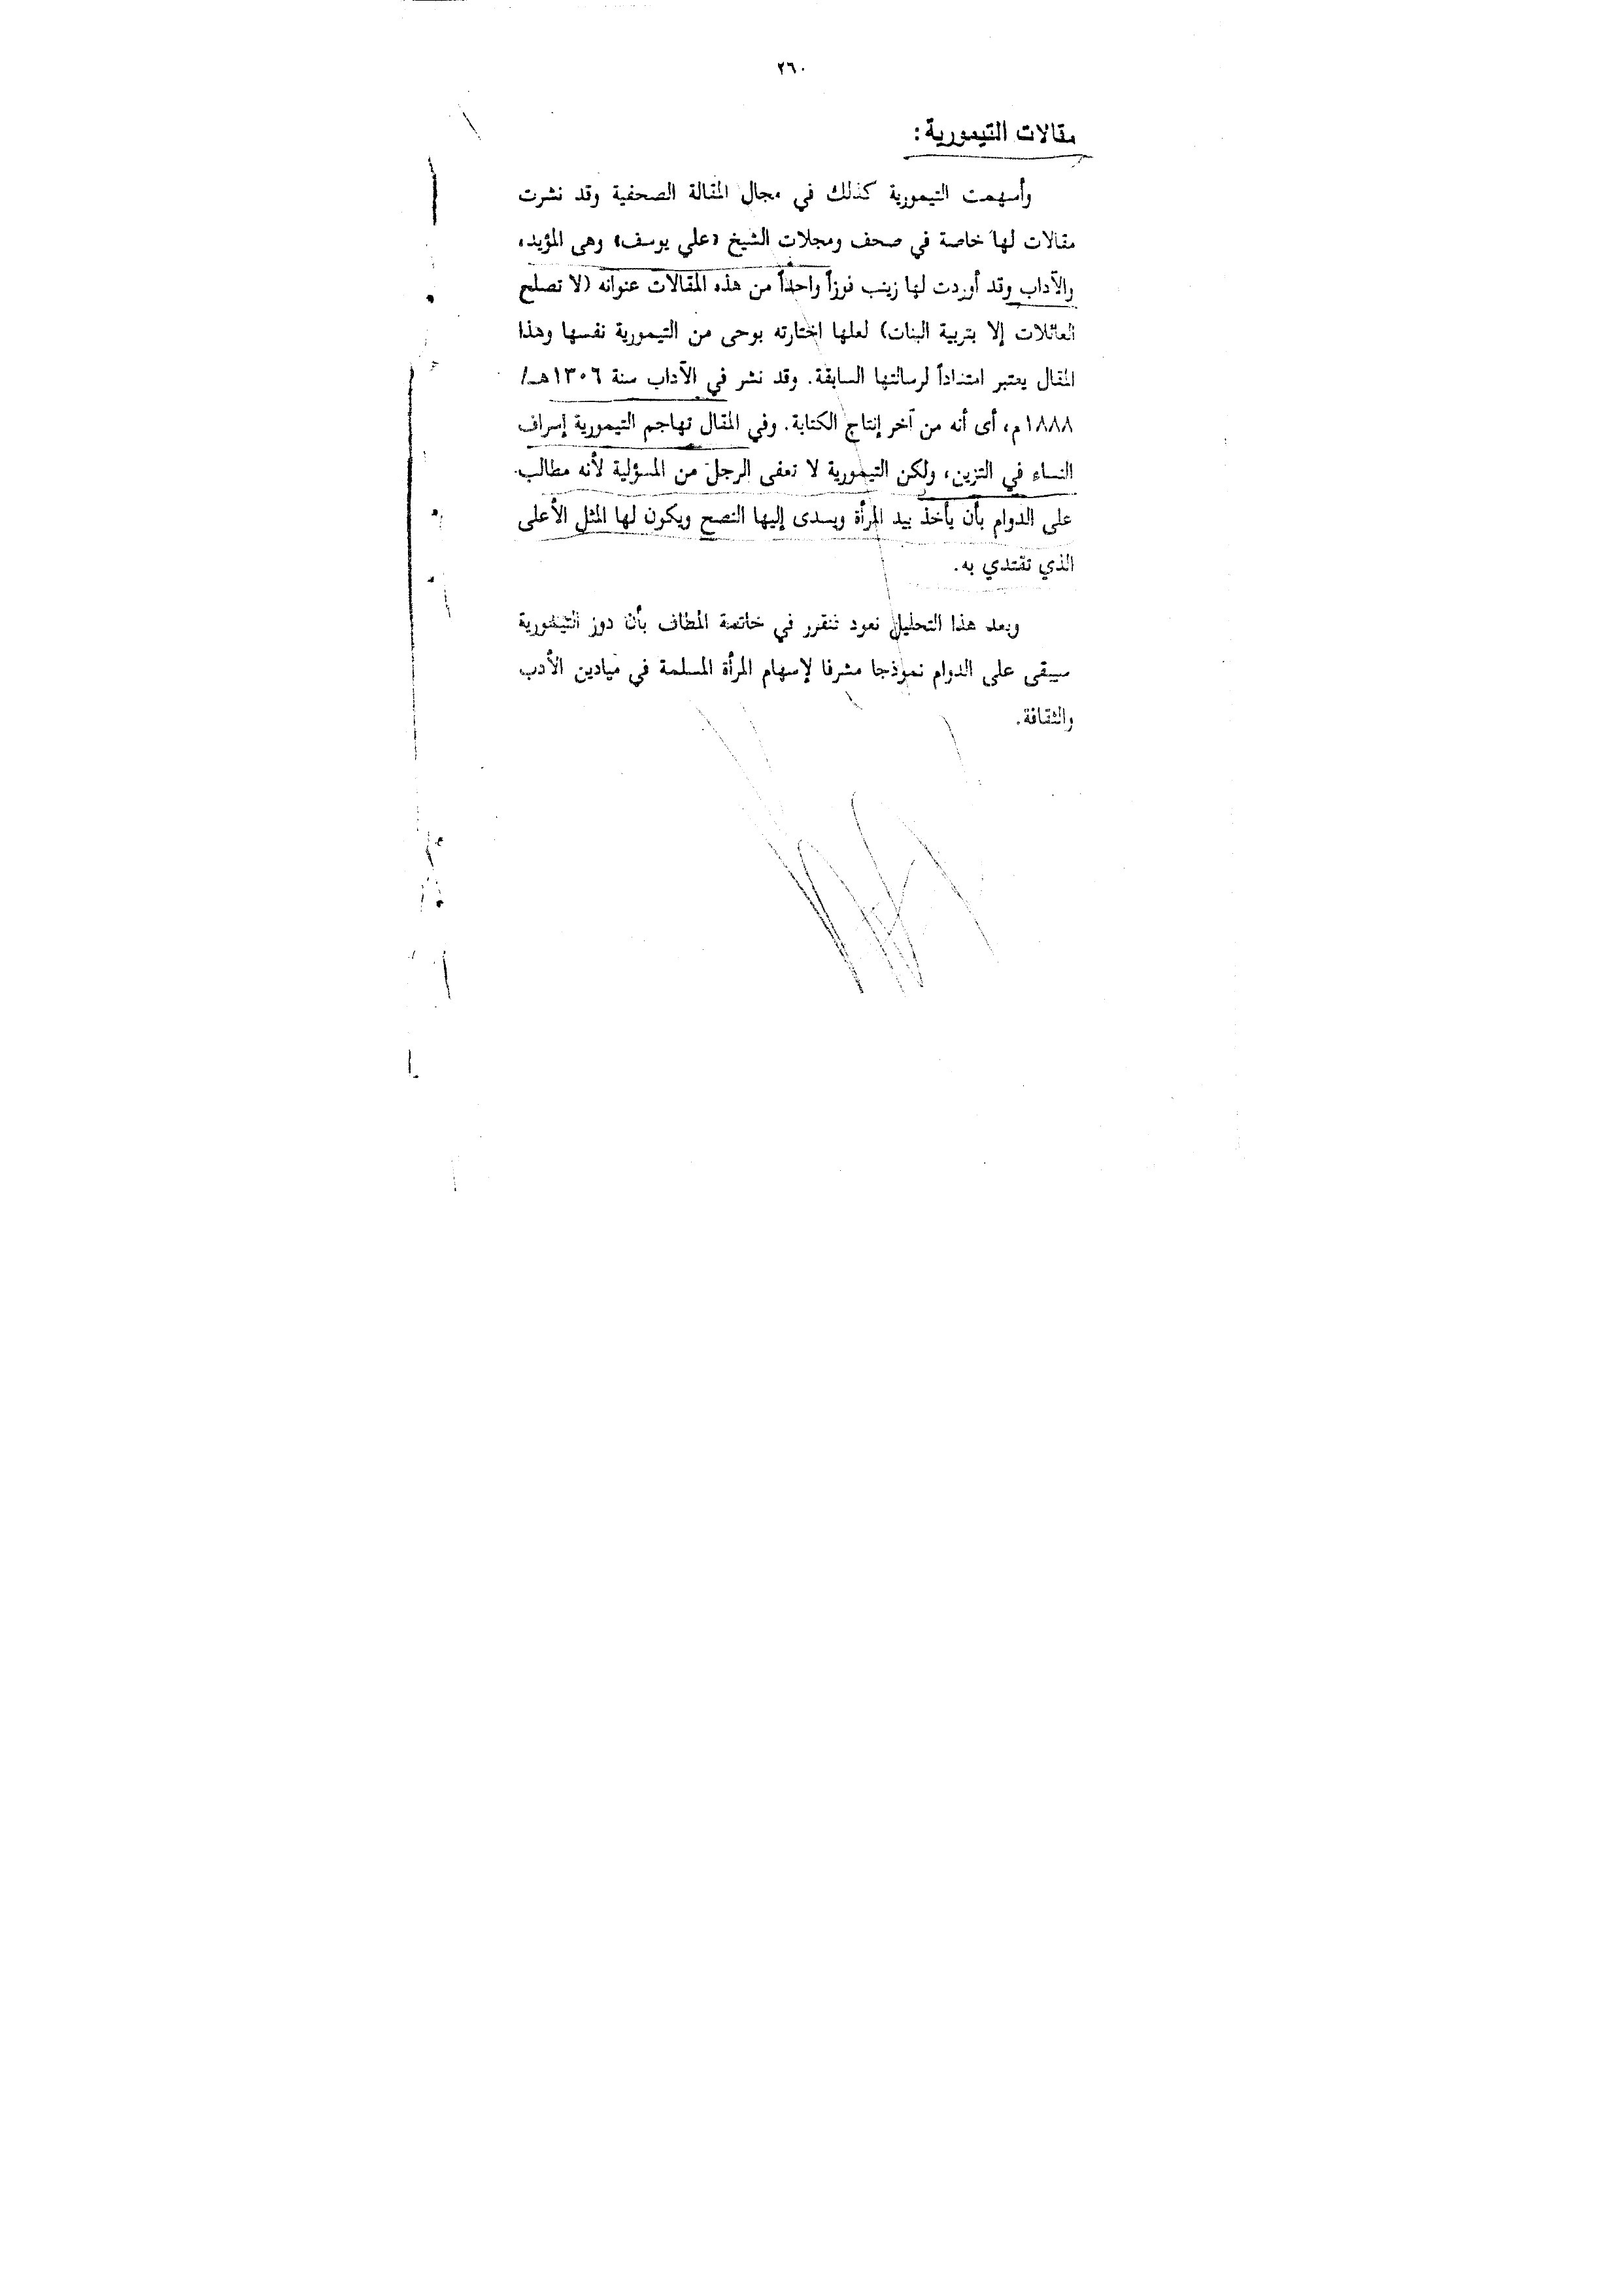 ٢٦٠
مقالات التيمورية :
وأسهمت التيمورية كذلك في مجال المقالة الصحفية وقد نشرت
مقالات لها خاصة في صحف ومجلات الشيخ «علي يوسف» وهى المؤيد،
والآداب وقد أوردت لها زينب فوزاً واحداً من هذه المقالات عنوانه (لا تصلح
العائلات إلا بتربية البنات) لعلها اختارته بوحى من التيمورية نفسها وهذا
المقال يعتبر امتداداً لرسالتها السابقة. وقد نشر في الآداب سنة ١٣٠٦هـ/
١٨٨٨م، أى أنه من آخر إنتاج الكتابة. وفي المقال تهاجم التيمورية إسراف
النساء في التزين، ولكن التيمورية لا تعفى الرجل من المسؤلية لأنه مطالب
على الدوام بأن يأخذ بيد المرأة ويسدى إليها النصح ويكون لها المثل الأعلى
الذي تقتدي به.
وبعد هذا التحليل نعود فنقرر في خاتمة المطاف بأن دور التيمورية
سيبقى على الدوام نموذجا مشرفا لإسهام المرأة المسلمة في ميادين الأدب
والثقافة.